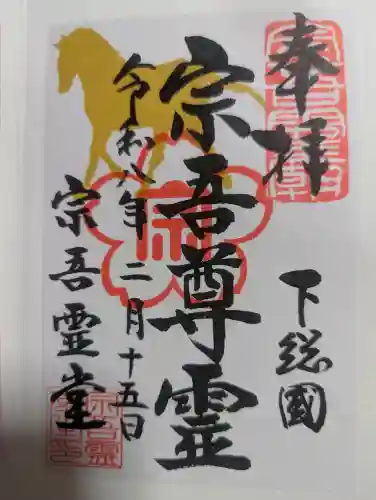 奉拝
下総國
宗吾尊霊
令和八年二月十五日
宗吾霊堂